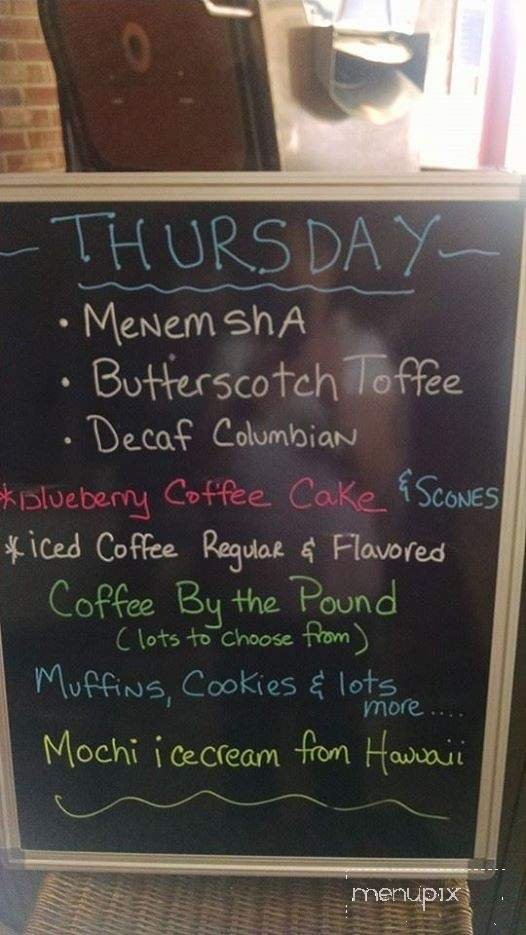 ~ THURSDAY ~
• Menemsha
• Butterscotch Toffee
• Decaf Columbian
*Blueberry Coffee Cake & Scones
*iced Coffee Regular & Flavored
Coffee By the Pound
(lots to choose from)
Muffins, Cookies & lots
more....
Mochi icecream from Hawaii
menupix